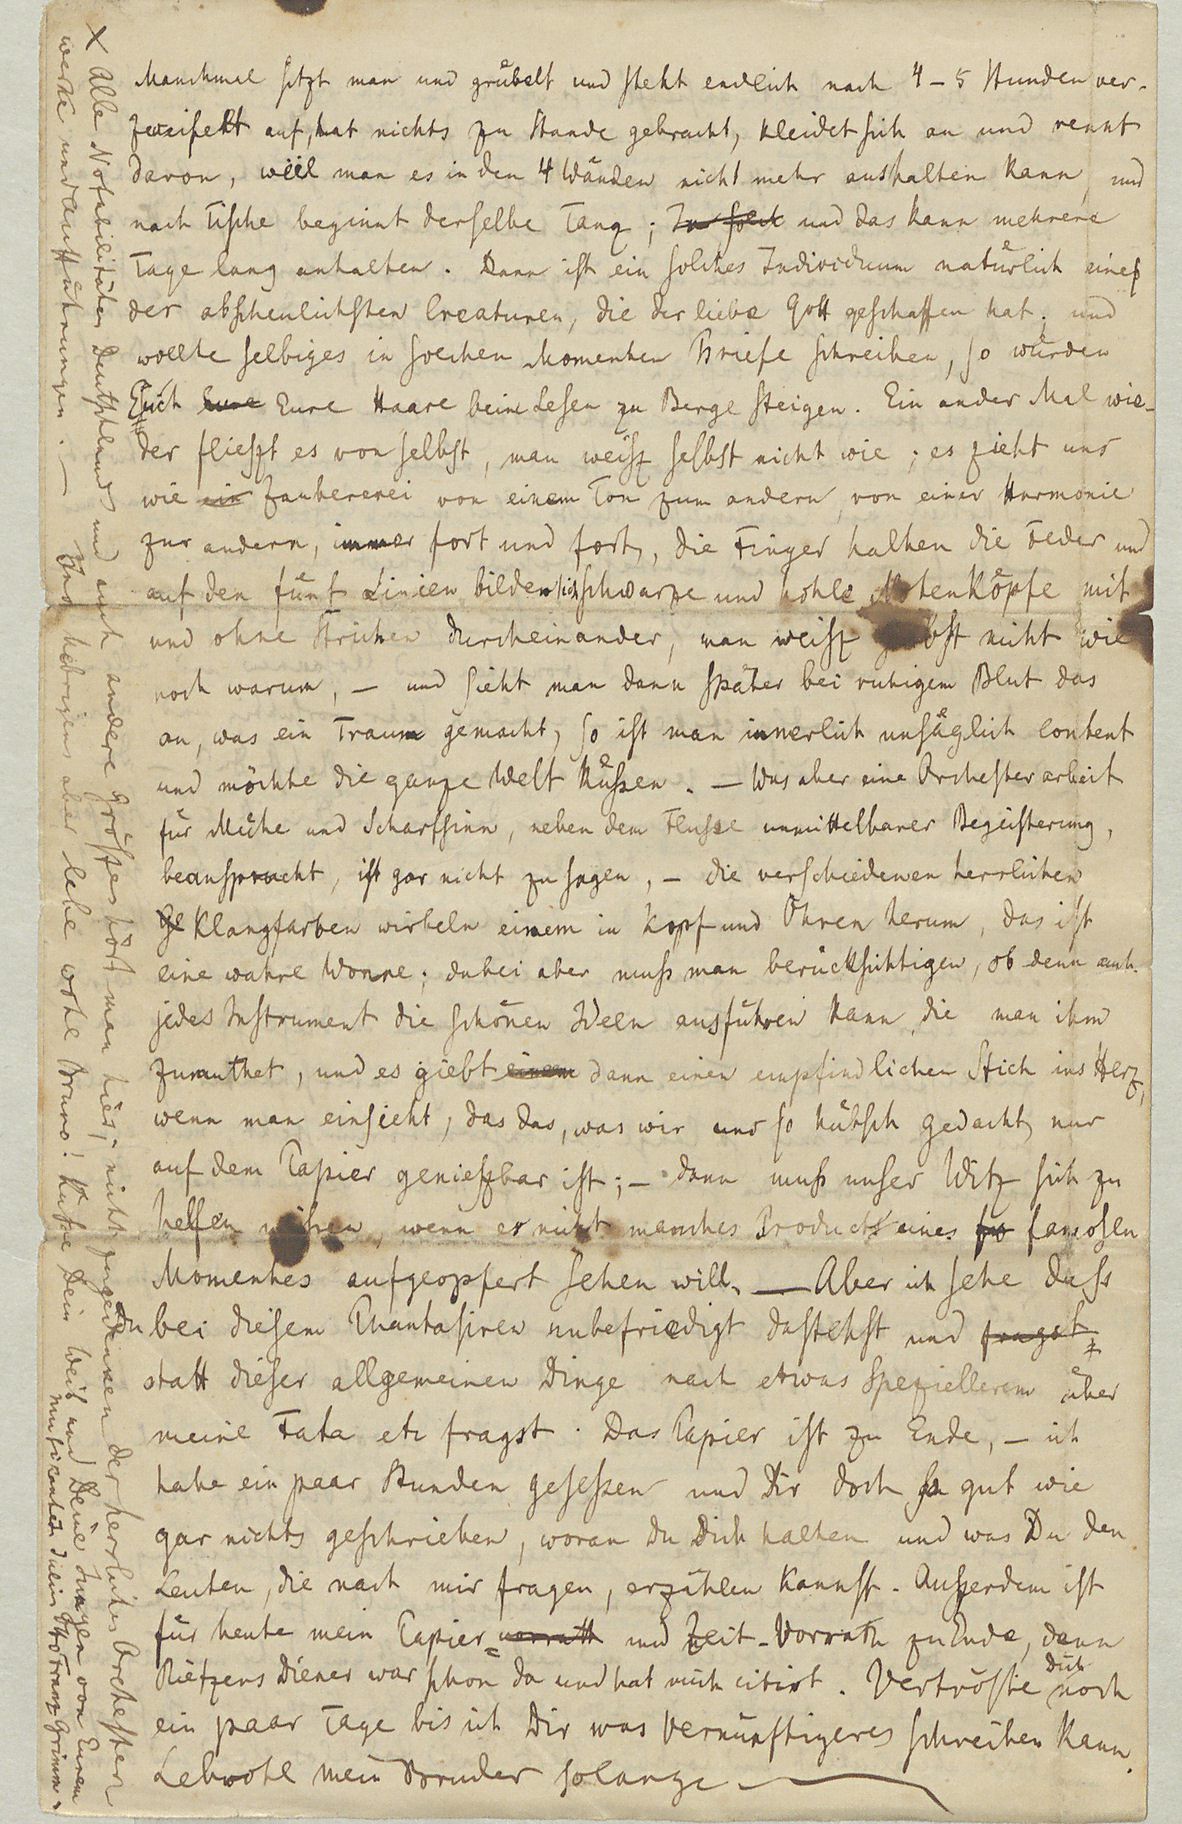 Manchmal sitzt man und grübelt und steht endlich nach 4-5 Stunden ver-
zweifelt auf, hat nichts zu Stande gebracht, kleidet sich an und rennt
davon, weil man es in den 4 Wänden nicht mehr aushalten kann, und
nach Tische beginnt derselbe Tanz; In solch und das kann mehrere
Tage lang anhalten. Dann ist ein solches Individuum natürlich eines
der abscheulichsten Creaturen, die der liebe Gott geschaffen hat; und
wollte selbiges in solchen Momenten Briefe schreiben, so würden
Euch Eure Eure Haare beim Lesen zu Berge steigen. Ein ander Mal wie-
der flieszt es von selbst, man weisz selbst nicht wie; es zieht uns
wie ein Zaubererei von einem Ton zum andern, von einer Harmonie
zur andern, immer fort und fort, die Finger halten die Feder und
auf den fünf Linien bilden sich schwarze und hohle Notenköpfe mit
und ohne Strichen durcheinander, man weisz selbst nicht wie
noch warum, — und sieht man dann später bei ruhigem Blut das
an, was ein Traum gemacht, so ist man innerlich unsäglich content
und möchte die ganze Welt küssen. — Was aber eine Orchesterarbeit
für Mühe und Scharfsinn, neben dem Flusse unmittelbarer Begeisterung,
beansprucht, ist gar nicht zu sagen, — die verschiedenen herrlichen
Ge Klangfarben wirbeln einem in Kopf und Ohren herum, das ist
eine wahre Wonne; dabei aber muss man berücksichtigen, ob denn auch
jedes Instrument die schönen Ideen ausführen kann, die man ihm
zumuthet, und es giebt einem dann einen empfindlichen Stich ins Herz,
wenn man einsieht, das das, was wir uns so hübsch gedacht, nur
auf dem Papier genieszbar ist; — dann muss unser Witz sich zu
helfen wissen, wenn er nicht manches Product eines fa famosen
Momentes aufgeopfert sehen will. — Aber ich sehe dass
Du bei diesem Phantasiren unbefriedigt dastehst und fragst
statt dieser allgemeinen Dinge nach etwas Speziellerem über
meine Fata etc fragst. Das Papier ist zu Ende, — ich
habe ein paar Stunden gesessen und Dir doch so gut wie
gar nichts geschrieben, woran Du Dich halten und was Du den
Leuten, die nach mir fragen, erzählen kannst. Ausserdem ist
für heute mein Papier= vorrath und Zeit-Vorrath zu Ende, denn
Rietzens Diener war schon da und hat mich citirt. Vertröste Dich noch
ein paar Tage bis ich Dir was Vernünftigeres schreiben kann.
Lebwohl mein Bruder solange —
X Alle Notabilitäten Deutschlands und auch andere Gröszen hört man hier; nicht zu gedenken der herrlichen Orchester
werke und Aufführungen. — Jetzt übrigens aber lebe wohl Bruno! Küsse Dein Weib und Deine Jungen von Eurem
musicanten Julius Otto Franz Grimm.